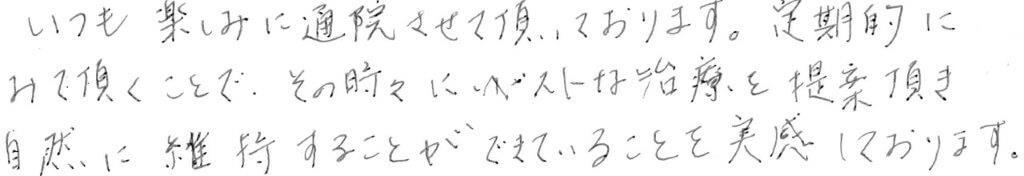 いつも楽しみに通院させて頂いております。定期的に
みて頂くことで、その時々にベストな治療を提案頂き
自然に維持することができていることを実感しております。